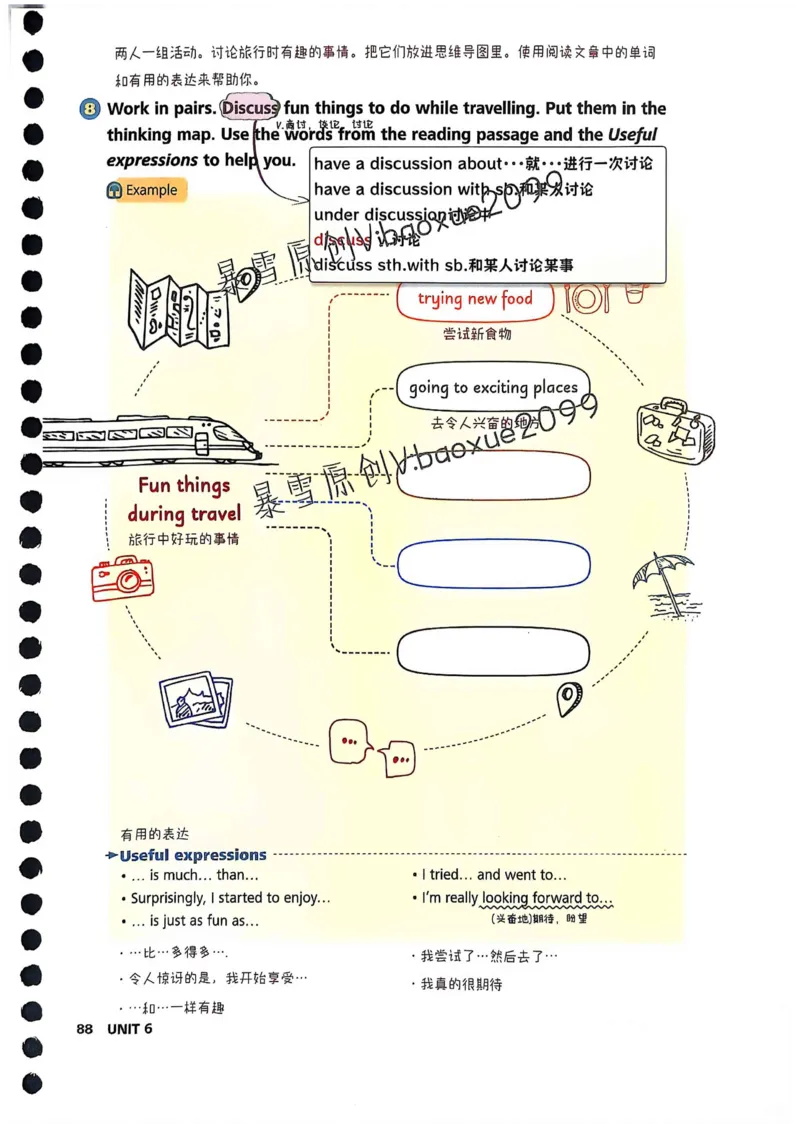 两人一组活动。讨论旅行时有趣的事情。把它们放进思维导图里。使用阅读文章中的单词
和有用的表达来帮助你。
8 Work in pairs. Discuss fun things to do while travelling. Put them in the
v.商讨，谈论，讨论
thinking map. Use the words from the reading passage and the Useful
expressions to help you.
have a discussion about···就···进行一次讨论
have a discussion with sb.和某人讨论
under discussion讨论中
discuss v.讨论
discuss sth.with sb.和某人讨论某事
Example
暴雪原创V:baoxue2099
trying new food
尝试新食物
going to exciting places
去令人兴奋的地方
暴雪原创V:baoxue2099
Fun things
during travel
旅行中好玩的事情
有用的表达
Useful expressions
• ... is much... than...
• I tried... and went to...
• Surprisingly, I started to enjoy...
• I'm really looking forward to...
(兴奋地)期待，盼望
• ... is just as fun as...
····比···多得多···.
·我尝试了···然后去了···
·令人惊讶的是，我开始享受···
·我真的很期待
····和···一样有趣
88 UNIT 6